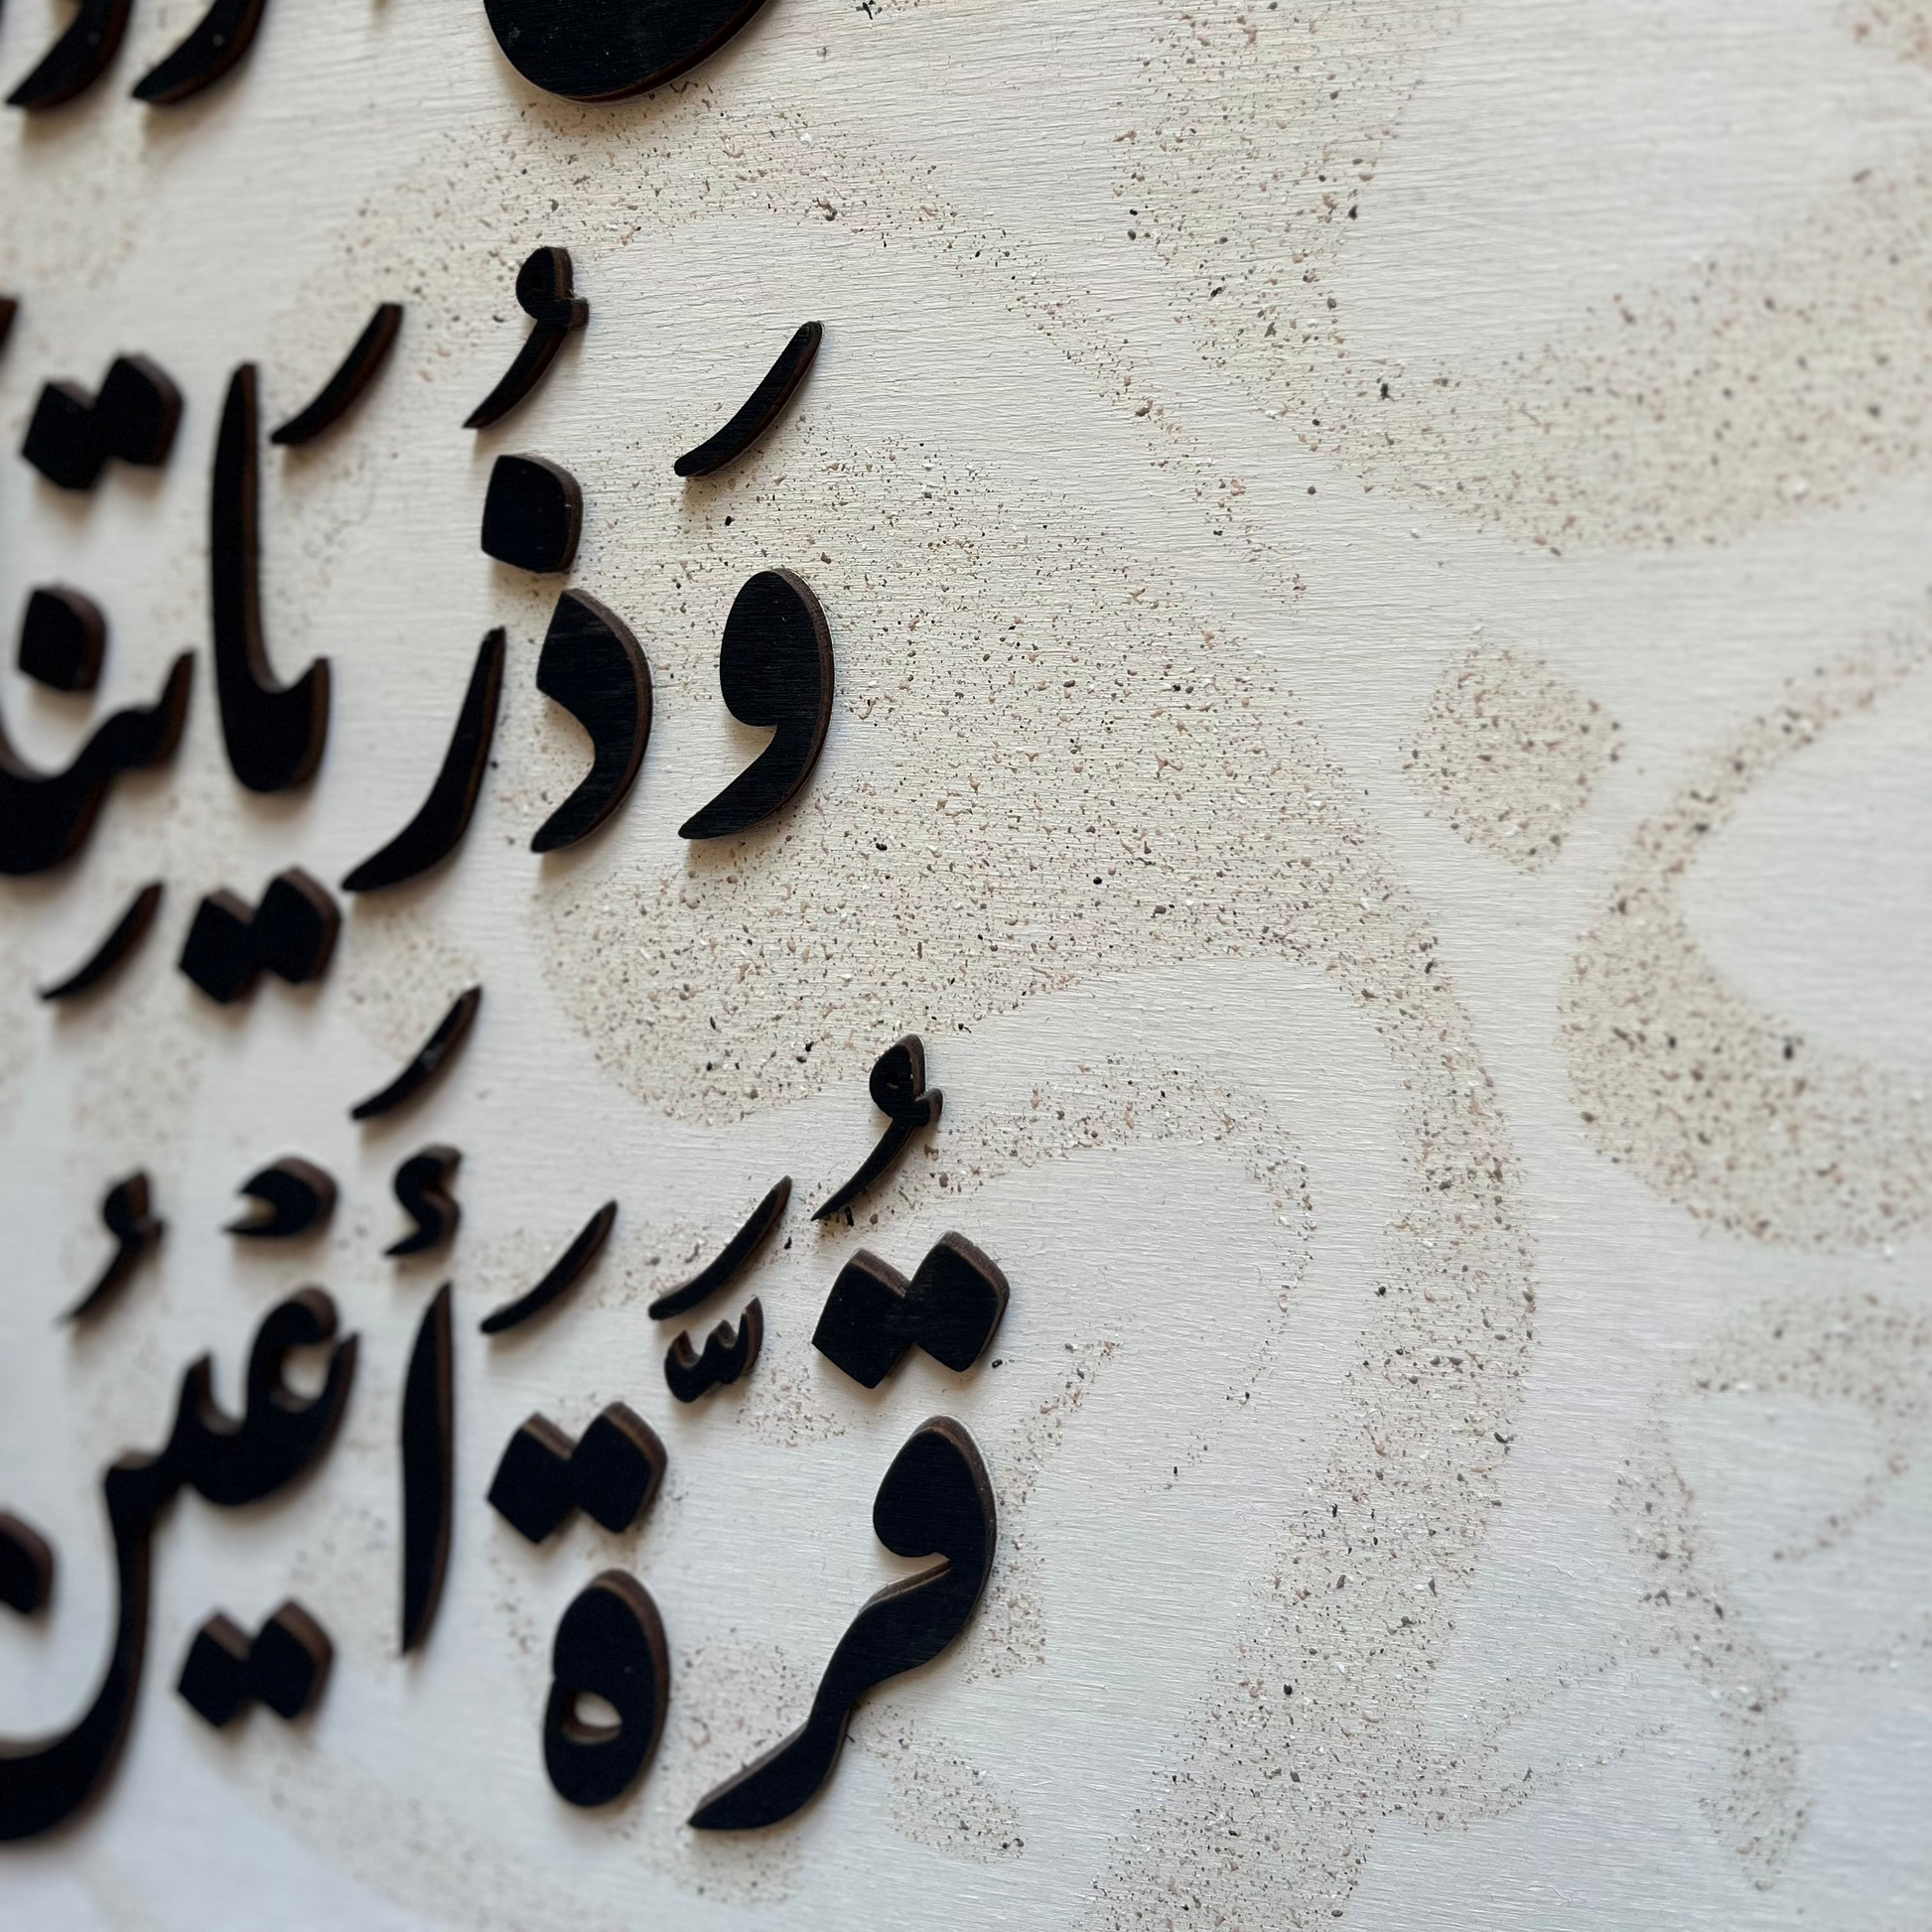 وَذُريَاتِنَ
قُرَّةَ أَعْيُن